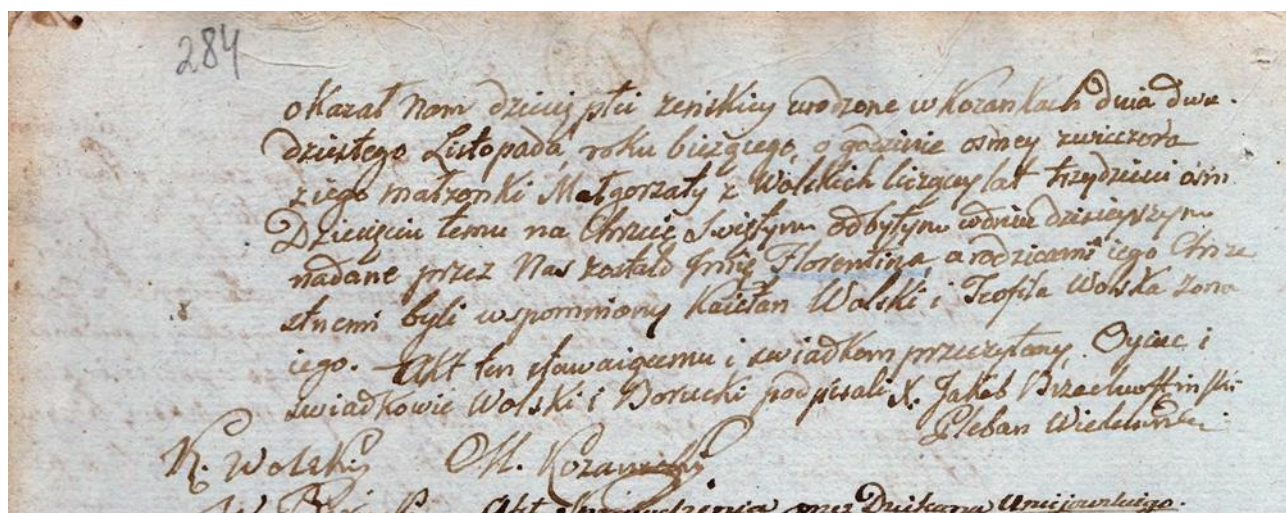 284
okazał nam dziecię płci żeńskiey urodzone w Kozankach dnia dwu-
dziestego Listopada roku bieżącego, o godzinie osmey zwieczora
z iego małżonki Małgorzaty z Wolskich liczący lat trzydzieści ośm
Dziecięciu temu na Chrzcie Swiętym odbytym w dniu dzisieyszym
nadane przez Nas zostało Imię Florentina, a rodzicami iego Chrze
stnemi byli wspomniony Kaietan Wolski i Teofila Wolska żona
iego. Akt ten stawaiącemu i swiadkom przeczytany, Oyciec i
swiadkowie Wolski i Dorucki podpisali X. Jakób
Pleban
K. Wolski M.
Akt przez Dziekana Uniejowskiego.